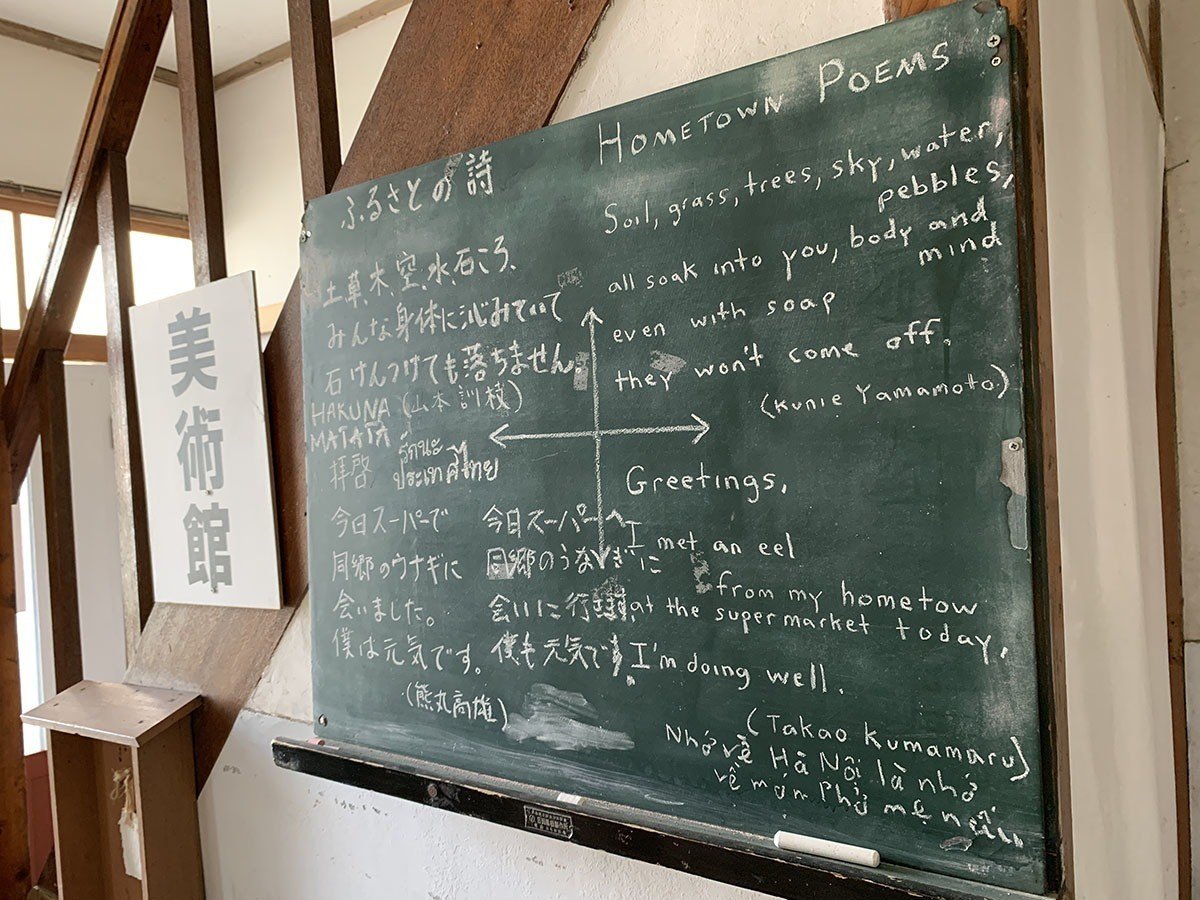 美術館
ふるさとの詩
土、草、木、空、水、石ころ、
みんな身体に沁みていて
石けんつけても落ちません。
(山本訓
HAKUNA
MATATA
รักนะ
ประเทศไทย
拝啓
今日スーパーで
同郷のウナギに
会いました。
僕は元気です。
(熊丸高雄)
今日スーパーへ
同郷のうなぎに
会いに行
僕も元気です
HOMETOWN POEMS
Soil, grass, trees, sky, water,
pebbles,
all soak into you, body and
mind
even with soap
they won't come off.
(Kunie Yamamoto)
Greetings,
I met an eel
from my hometow
at the supermarket today,
I'm doing well.
(Takao Kumamaru)
Nhớ về Hà Nội là nhớ
về món Phở mẹ nấu